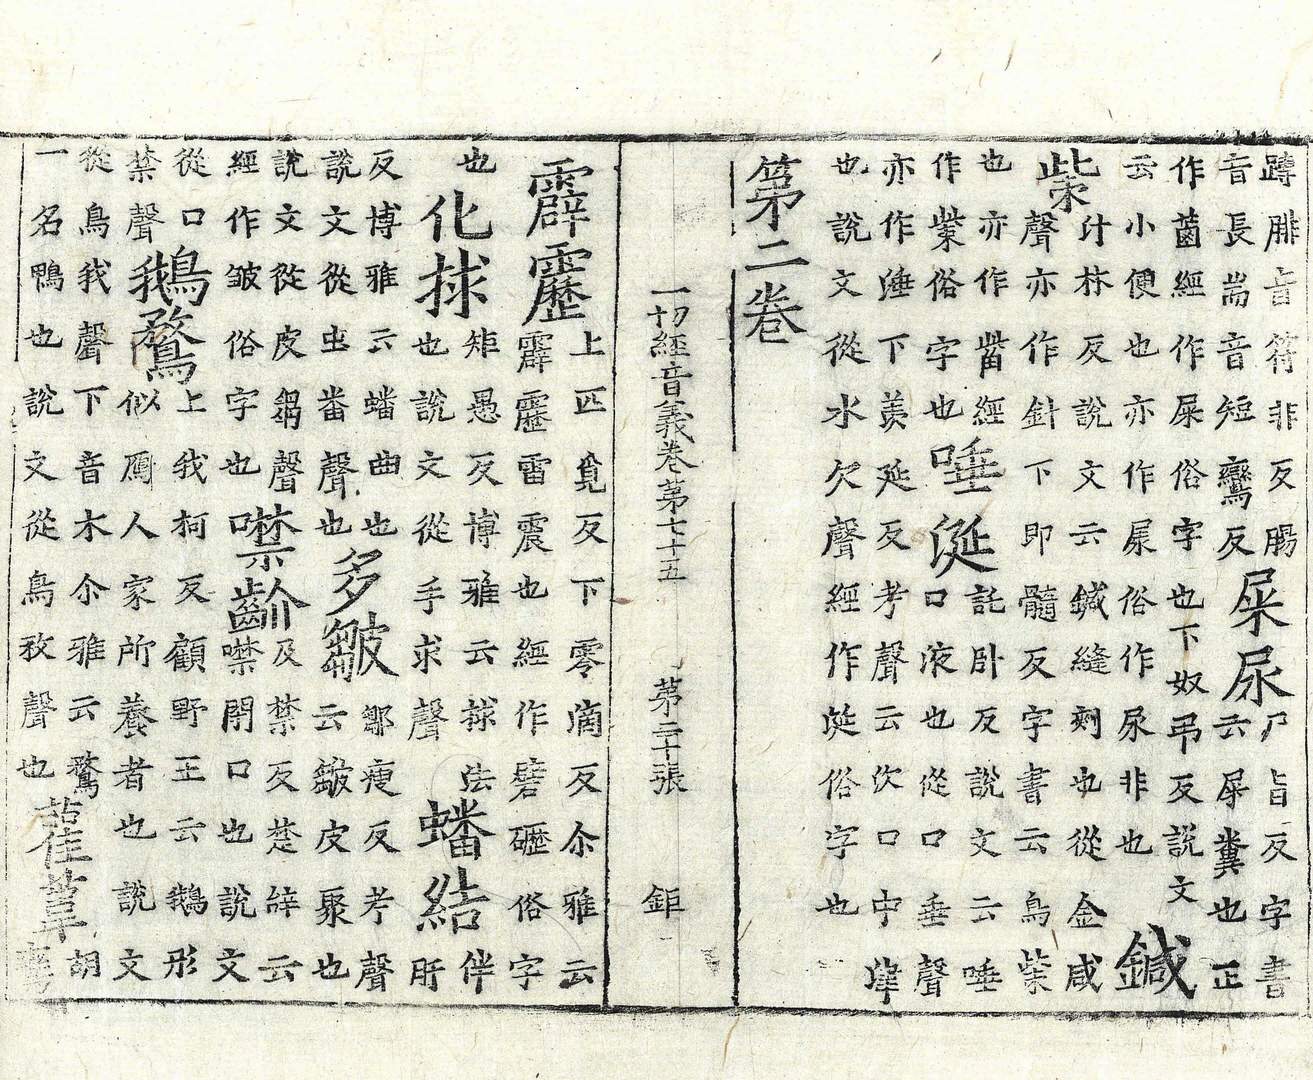 蹲腓音符非反腸
音長耑音短臠反
屎尿
尸旨反字書
云屎糞也正
作𦳊經作屎俗字也下奴弔反説文
云小便也亦作㞙俗作尿非也
鍼㭰
汁林反説文云鍼縫刺也從金咸
聲亦作針下即髓反字書云鳥㭰
也亦作觜經
作紫俗字也
唾涎
託卧反説文云唾
口液也從口垂聲
亦作涶下羡延反考聲云㳄口中津
也説文從水欠聲經作涎俗字也
第二卷
一切經音義卷苐七十五 苐二十張 鉅
霹靂
上匹覓反下零滴反尒雅云
霹靂雷震也經作礔礰俗字
也
化捄
矩愚反博雅云捄法
也説文從手求聲
蟠結
伴
肝
反博雅云蟠曲也
説文從虫番聲也
多皺
鄒瘦反考聲
云皺皮聚也
説文從皮芻聲
經作皱俗字也
噤齘
及禁反楚辝云
噤閇口也説文
從口
禁聲
鵝鶩
上我柯反顧野王云鵝形
似鴈人家所養者也説文
從鳥我聲下音木尒雅云鶩
一名鴨也説文從鳥敄聲也
萑葦
胡